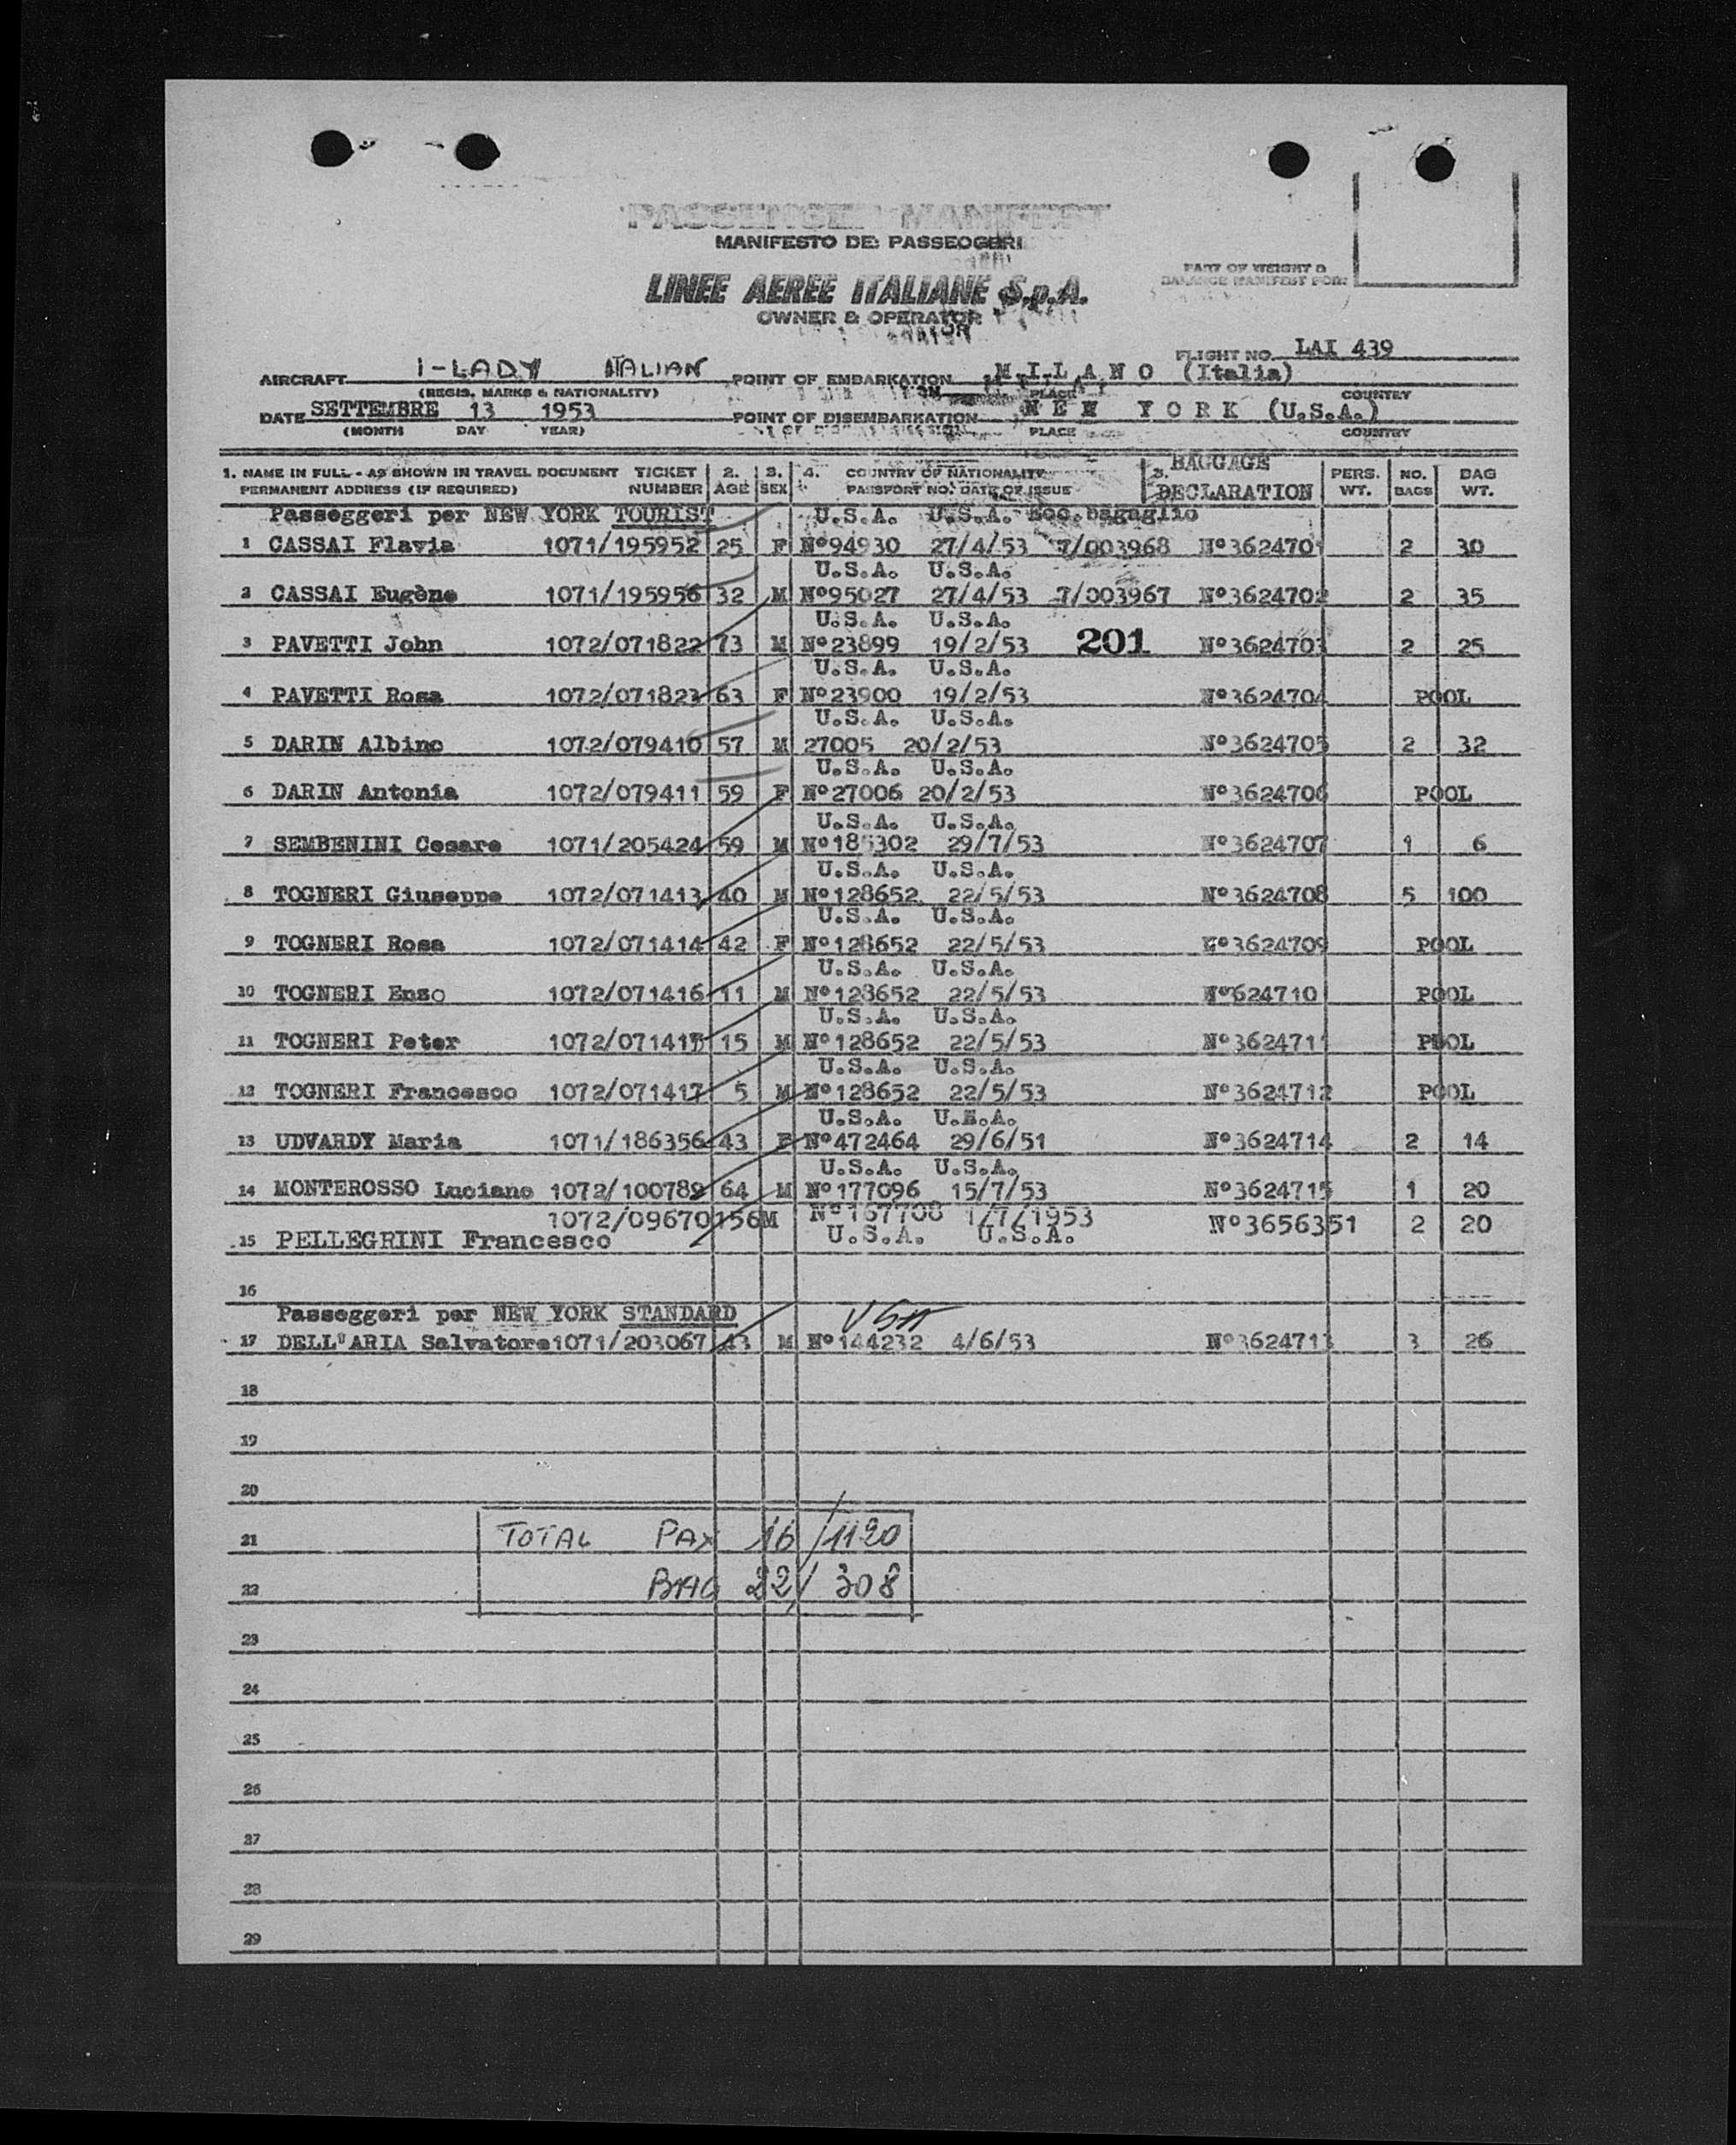 PASSENGER MANIFEST
MANIFESTO DEI PASSEOGERI
LINEE AEREE ITALIANE S.p.A.
OWNER & OPERATOR
PART OF WEIGHT &
BALANCE MANIFEST FOR:
FLIGHT NO. LAI 439
AIRCRAFT I-LADY ITALIAN POINT OF EMBARKATION MILANO (Italia)
(REGIS. MARKS & NATIONALITY) PLACE COUNTRY
DATE SETTEMBRE 13 1953 POINT OF DISEMBARKATION NEW YORK (U.S.A.)
(MONTH DAY YEAR) PLACE COUNTRY
1. NAME IN FULL - AS SHOWN IN TRAVEL DOCUMENT TICKET 2. 3. 4. COUNTRY OF NATIONALITY 5. BAGGAGE PERS. NO. BAG
PERMANENT ADDRESS (IF REQUIRED) NUMBER AGE SEX PASSPORT NO. DATE OF ISSUE DECLARATION WT. BAGS WT.
Passeggeri per NEW YORK TOURIST U.S.A. U.S.A. Ecc.bagaglio
1 CASSAI Flavia 1071/195952 25 F Nº94930 27/4/53 7/003968 Nº3624701 2 30
U.S.A. U.S.A.
2 CASSAI Eugène 1071/195956 32 M Nº95027 27/4/53 7/003967 Nº3624702 2 35
U.S.A. U.S.A.
3 PAVETTI John 1072/071822 73 M Nº23899 19/2/53 201 Nº3624703 2 25
U.S.A. U.S.A.
4 PAVETTI Rosa 1072/071823 63 F Nº23900 19/2/53 Nº3624704 POOL
U.S.A. U.S.A.
5 DARIN Albino 1072/079410 57 M 27005 20/2/53 Nº3624705 2 32
U.S.A. U.S.A.
6 DARIN Antonia 1072/079411 59 F Nº27006 20/2/53 Nº3624706 POOL
U.S.A. U.S.A.
7 SEMBENINI Cesare 1071/205424 59 M Nº185302 29/7/53 Nº3624707 1 6
U.S.A. U.S.A.
8 TOGNERI Giuseppe 1072/071413 40 M Nº128652 22/5/53 Nº3624708 5 100
U.S.A. U.S.A.
9 TOGNERI Rosa 1072/071414 42 F Nº128652 22/5/53 Nº3624709 POOL
U.S.A. U.S.A.
10 TOGNERI Enzo 1072/071416 11 M Nº128652 22/5/53 Nº624710 POOL
U.S.A. U.S.A.
11 TOGNERI Peter 1072/071415 15 M Nº128652 22/5/53 Nº3624711 POOL
U.S.A. U.S.A.
12 TOGNERI Francesco 1072/071417 5 M Nº128652 22/5/53 Nº3624712 POOL
U.S.A. U.S.A.
13 UDVARDY Maria 1071/186356 43 F Nº472464 29/6/51 Nº3624714 2 14
U.S.A. U.S.A.
14 MONTEROSSO Luciano 1072/100789 64 M Nº177096 15/7/53 Nº3624715 1 20
1072/096701 56 M Nº167708 1/7/1953 Nº3656351 2 20
15 PELLEGRINI Francesco U.S.A. U.S.A.
16
Passeggeri per NEW YORK STANDARD USA
17 DELL'ARIA Salvatore 1071/203067 43 M Nº144232 4/6/53 Nº3624713 3 26
18
19
20
21 TOTAL PAX 16/1190
22 BAG 22/308
23
24
25
26
27
28
29